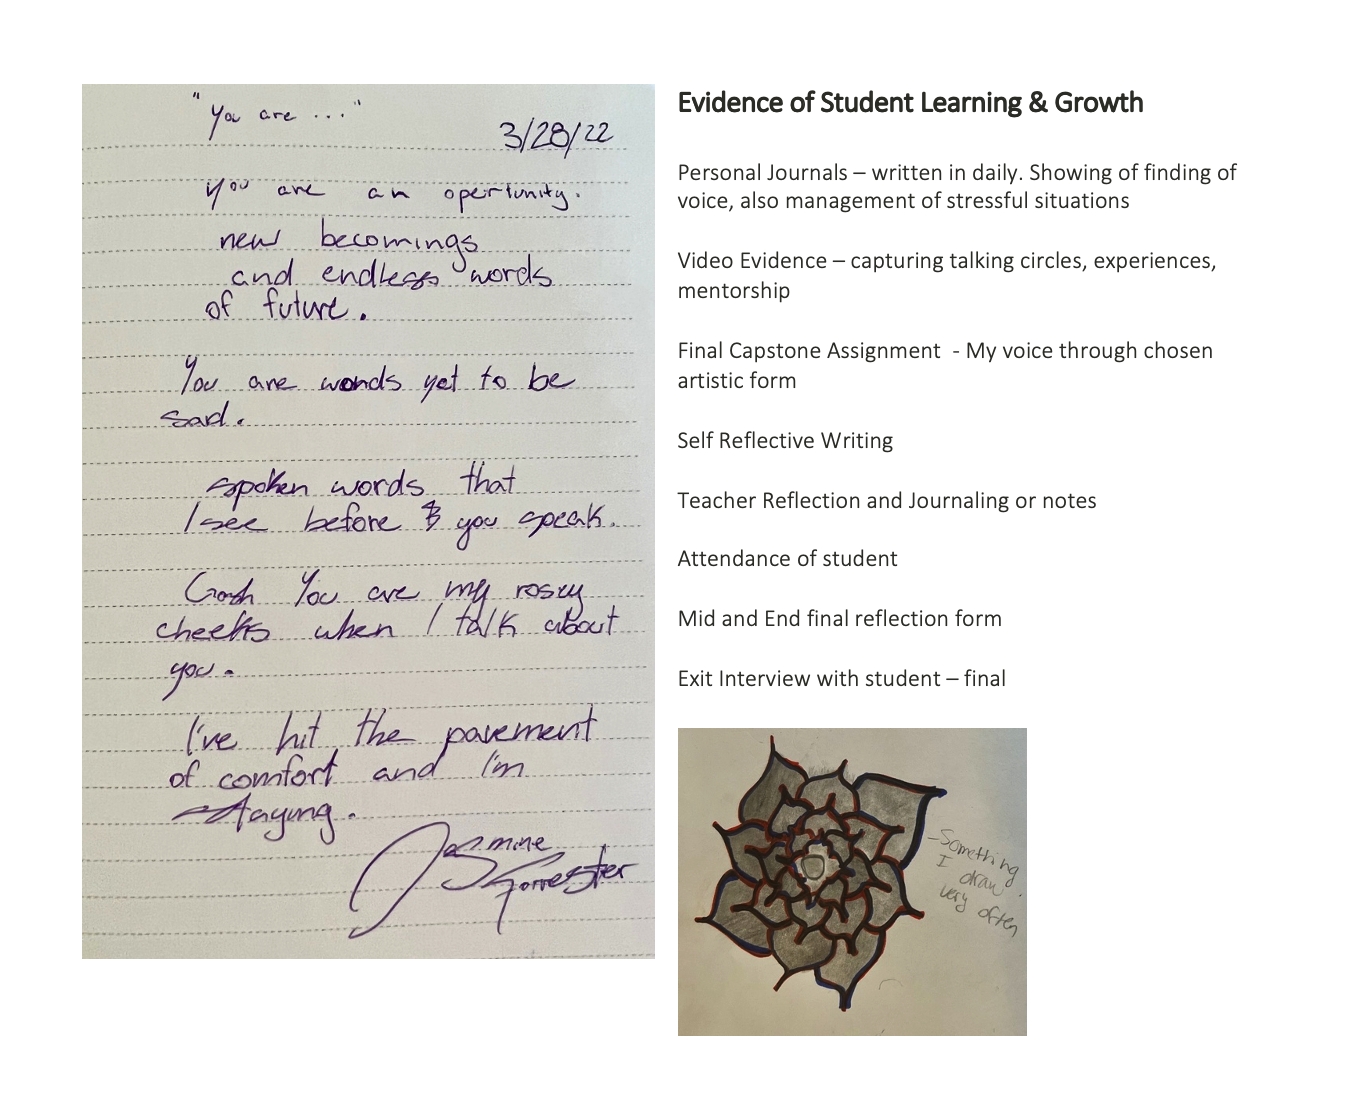 "You are ..."
3/28/22
You are an opertunity.
new becomings
and endless words
of future.
You are words yet to be
sad.
spoken words that
I see before you speak.
Gosh You are my rosey
cheeks when I talk about
you.
I've hit the pavement
of comfort and I'm
staying.
Jasmine
Forrester
Evidence of Student Learning & Growth
Personal Journals – written in daily. Showing of finding of
voice, also management of stressful situations
Video Evidence – capturing talking circles, experiences,
mentorship
Final Capstone Assignment  - My voice through chosen
artistic form
Self Reflective Writing
Teacher Reflection and Journaling or notes
Attendance of student
Mid and End final reflection form
Exit Interview with student – final
-Something
I draw
very often